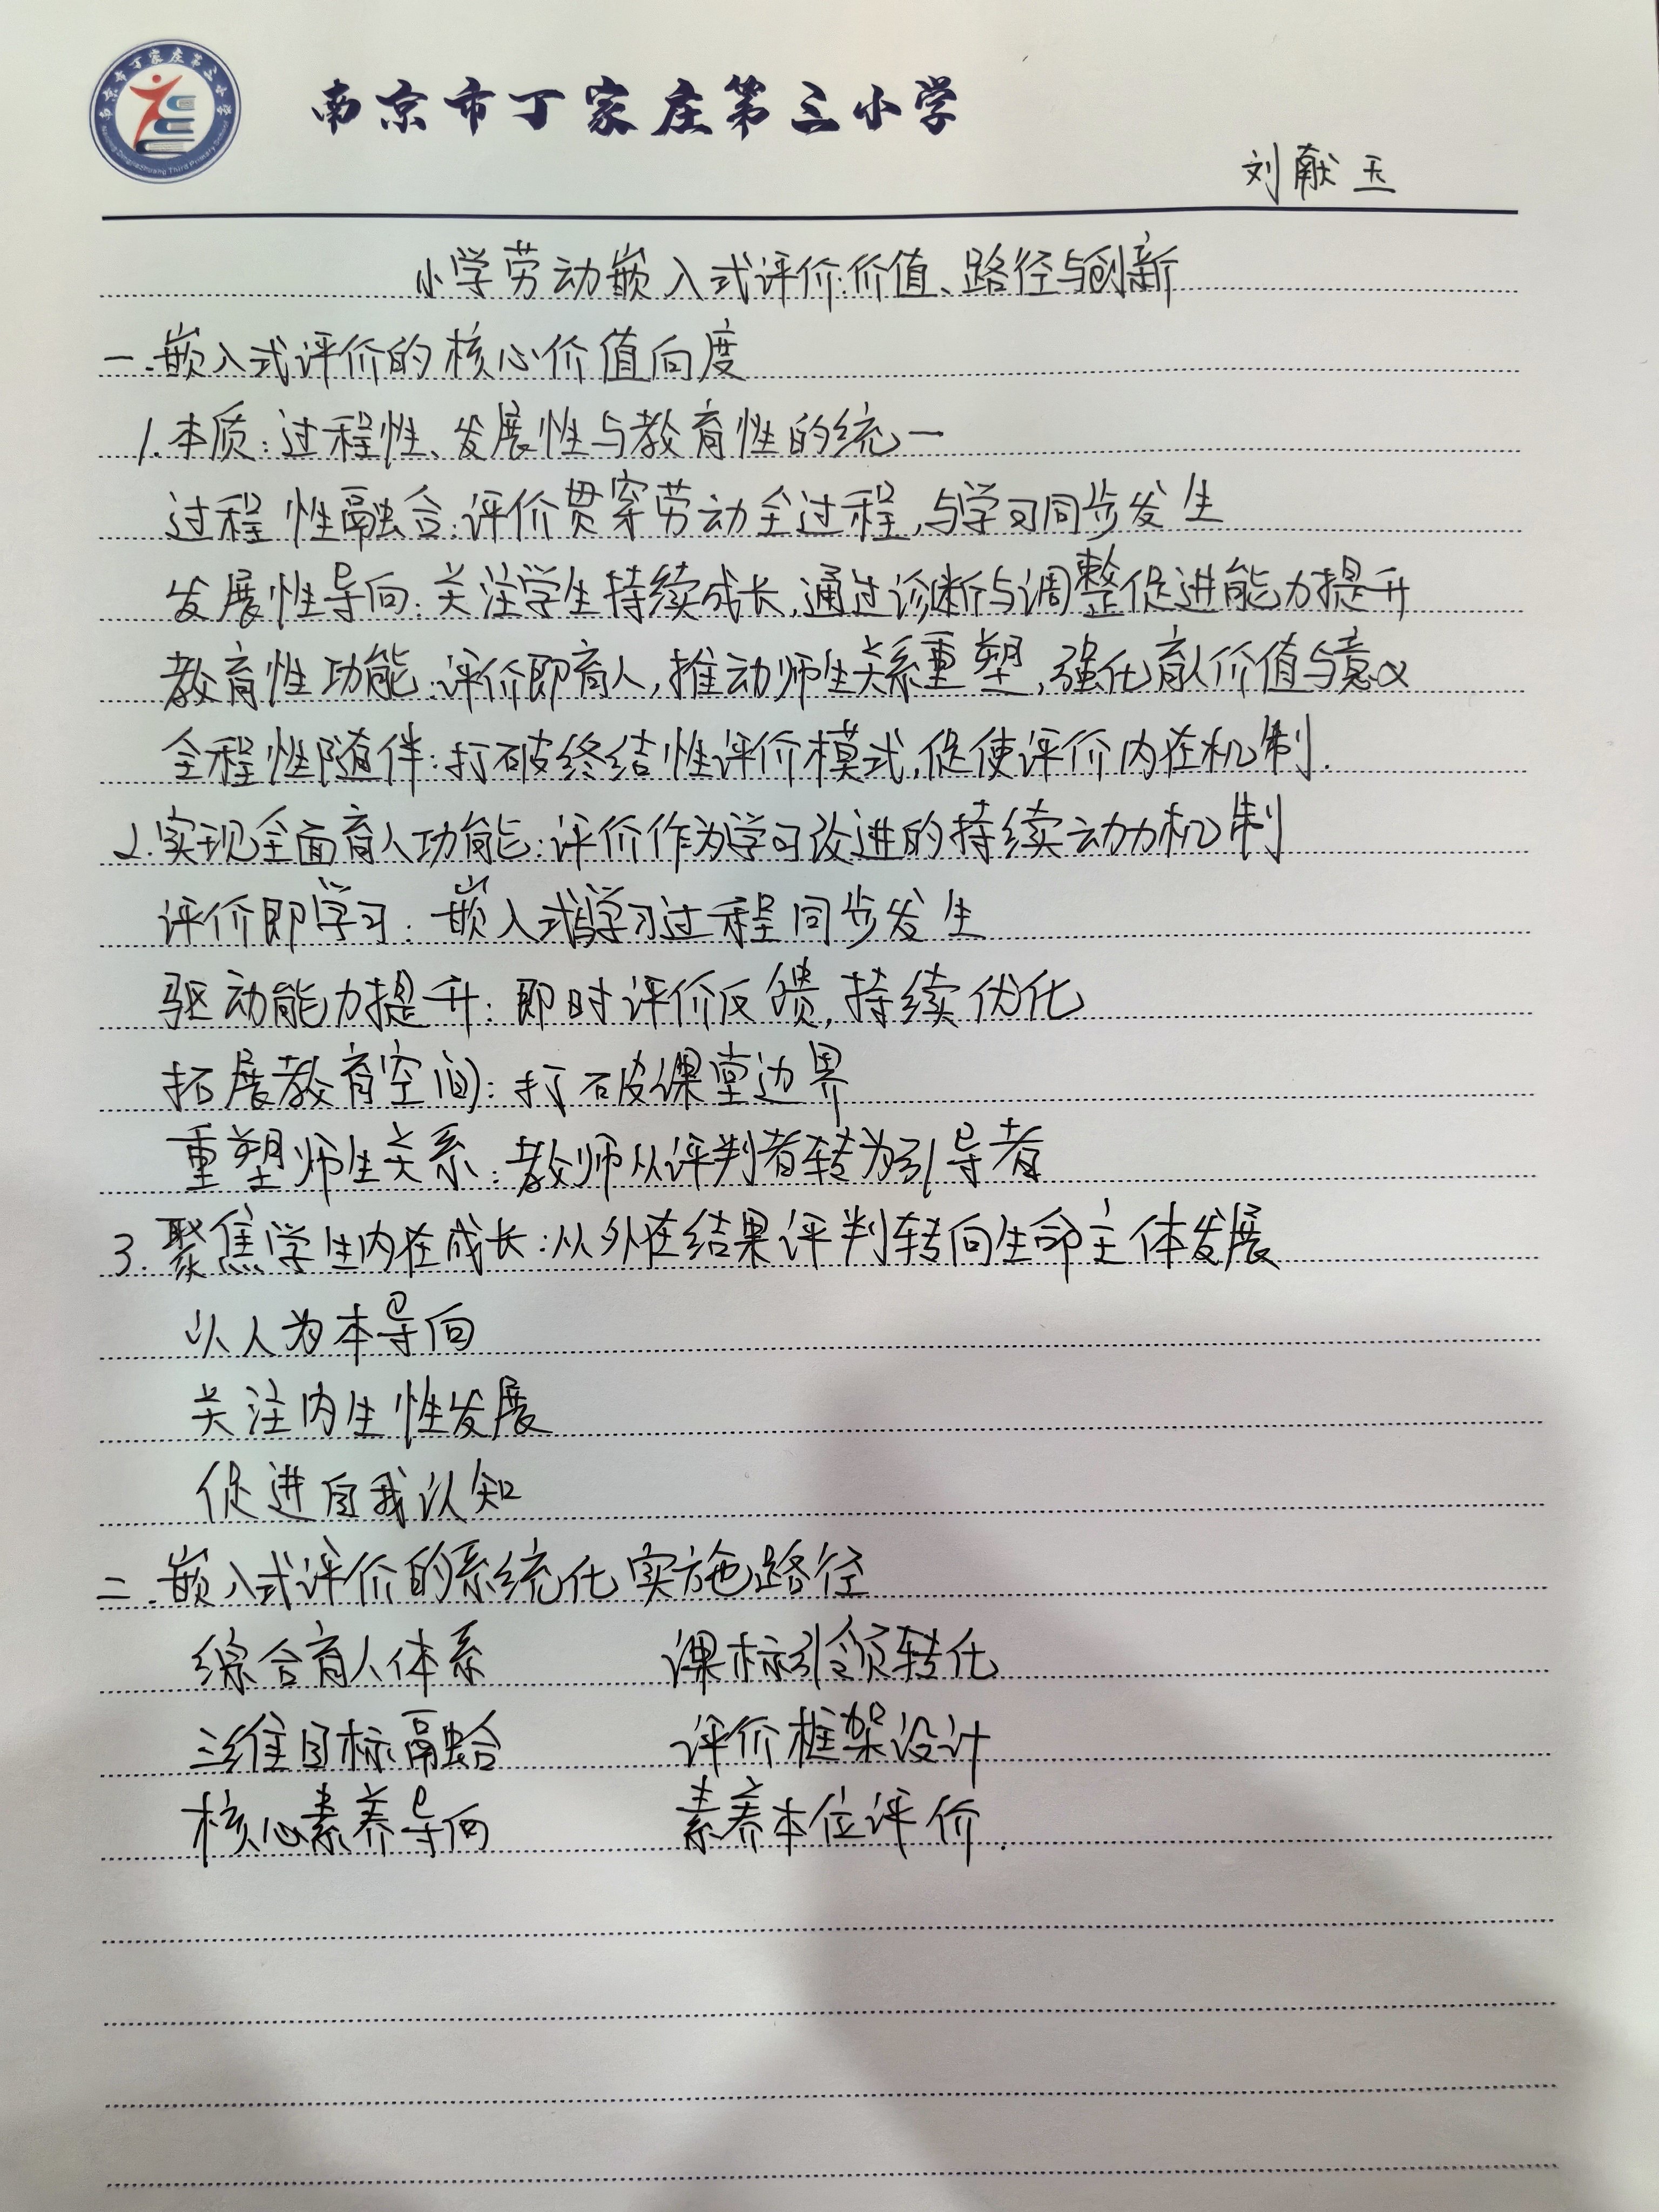 南京市丁家庄第三小学
南京市丁家庄第三小学
Nanjing Dingjiazhuang Third Primary School
刘献玉
小学劳动嵌入式评价:价值、路径与创新
一.嵌入式评价的核心价值向度
1.本质:过程性、发展性与教育性的统一
过程性融合:评价贯穿劳动全过程,与学习同步发生
发展性导向:关注学生持续成长,通过诊断与调整促进能力提升
教育性功能:评价即育人,推动师生关系重塑,强化育人价值与意义
全程性随伴:打破终结性评价模式,促使评价内在机制.
2.实现全面育人功能:评价作为学习改进的持续动力机制
评价即学习:嵌入式与学习过程同步发生
驱动能力提升:即时评价反馈,持续优化
拓展教育空间:打破课堂边界
重塑师生关系:教师从评判者转为引导者
3.聚焦学生内在成长:从外在结果评判转向生命主体发展
以人为本导向
关注内生性发展
促进自我认知
二.嵌入式评价的系统化实施路径
综合育人体系 课标引领转化
三维目标融合 评价框架设计
核心素养导向 素养本位评价.